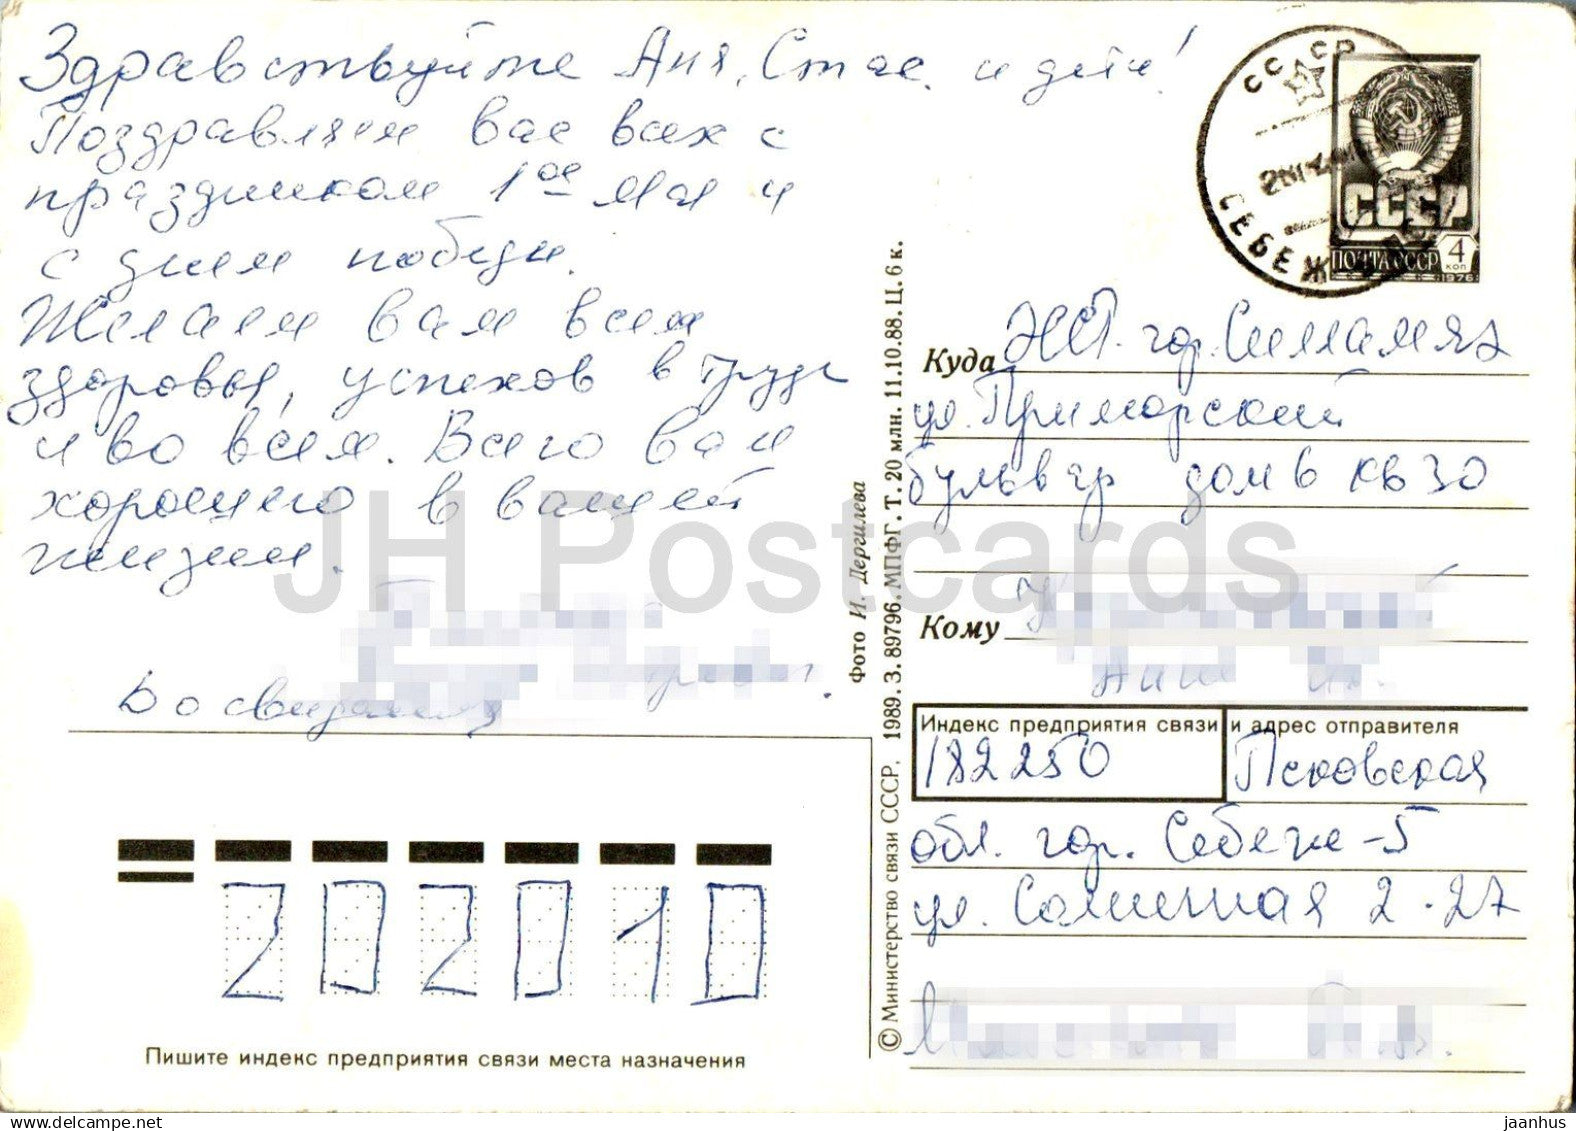 Здравствуйте Аня, Стас. и дети!
Поздравляем вас всех с
праздником 1ое Мая и
с днем победы.
Желаем вам всем
здоровья, успехов в труде
и во всем. Всего вам
хорошего в вашей
жизни.
До свидания
СССР
СЕБЕЖ
СССР
ПОЧТА СССР 4 коп
1976
Куда ЭСТ. гор. Силламяэ
ул. Приморский
бульвар дом 6 кв 30
Кому
Индекс предприятия связи и адрес отправителя
182250 Псковская
обл. гор. Себеже-5
ул. Солнечная 2-27
202010
Пишите индекс предприятия связи места назначения
© Министерство связи СССР. 1989. З. 89796. МПФГ. Т. 20 млн. 11.10.88. Ц. 6 к.
Фото И. Дергилева
JH Postcards
www.delcampe.net
jaanhus